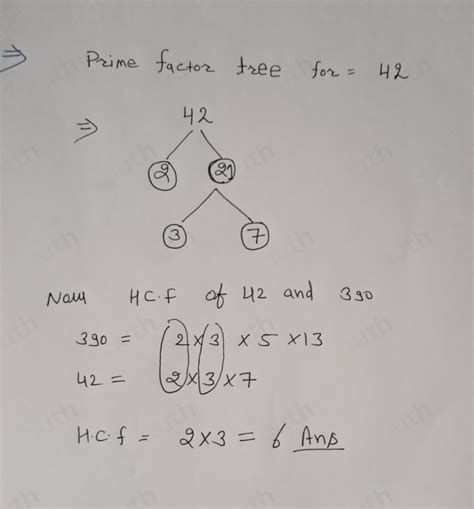 ⇒ Prime factor tree for = 42
⇒ 42
2 21
3 7
Now H.C.f of 42 and 390
390 = 2 x 3 x 5 x 13
42 = 2 x 3 x 7
H.C.f = 2 x 3 = 6 Ans